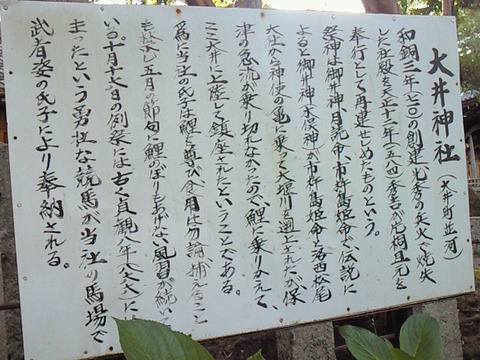 大井神社（大井町並河）
和銅三年（七一〇）の創建光秀の兵火で焼失
した社殿を天正十二年（一五八四）秀吉が片桐且元を
奉行にして再建せしめたものという。
祭神は御井神、月読命、市杵島姫命で、伝説に
よると御井神（木俣神）が市杵島姫命と洛西松尾
大社から神使の亀に乗って大堰川を遡上されたが、保
津の急流が乗り切れなかったので、鯉に乗りかえて、
ここ大井に上陸して鎮座されたということである。
為に当社の氏子は鯉を尊び食用は勿論、捕えること
も禁忌し五月の節句に鯉のぼりも立てない風習が続いて
いる。十月十七日の例祭は古く貞観八年（八六六）に
始まったという勇壮な競馬が当社の馬場で
武者姿の氏子により奉納される。